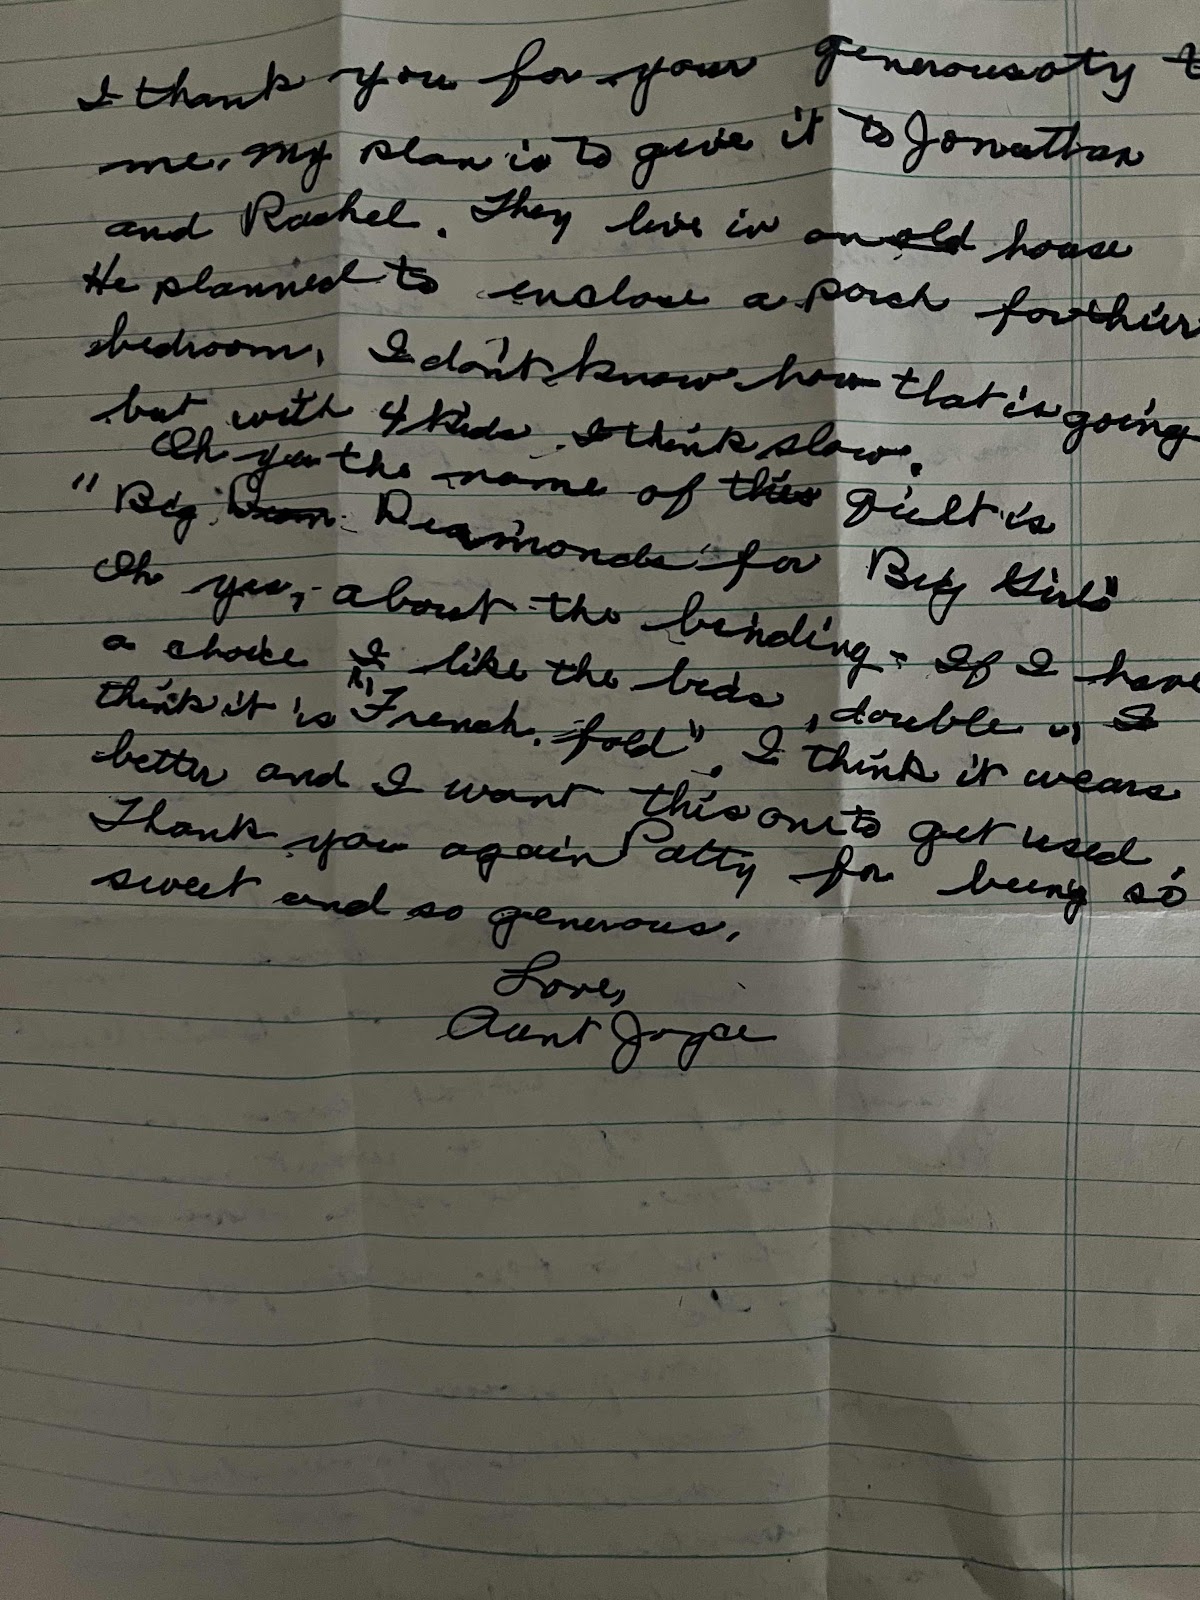 I thank you for your generousoty t
me. My plan is to give it to Jonathan
and Rachel. They live in an old house
He planned to enclose a porch for thier
bedroom, I don't know how that is going
but with 4 kids. I think slow.
Oh yes the name of this quilt is
"Big Diamonds for Big Girls"
Oh yes, about the binding - If I have
a choice I like the bias, double ", I
think it is "French fold". I think it wears
better and I want this one to get used.
Thank you again Patty for being so
sweet and so generous.
Love,
Aunt Joyce